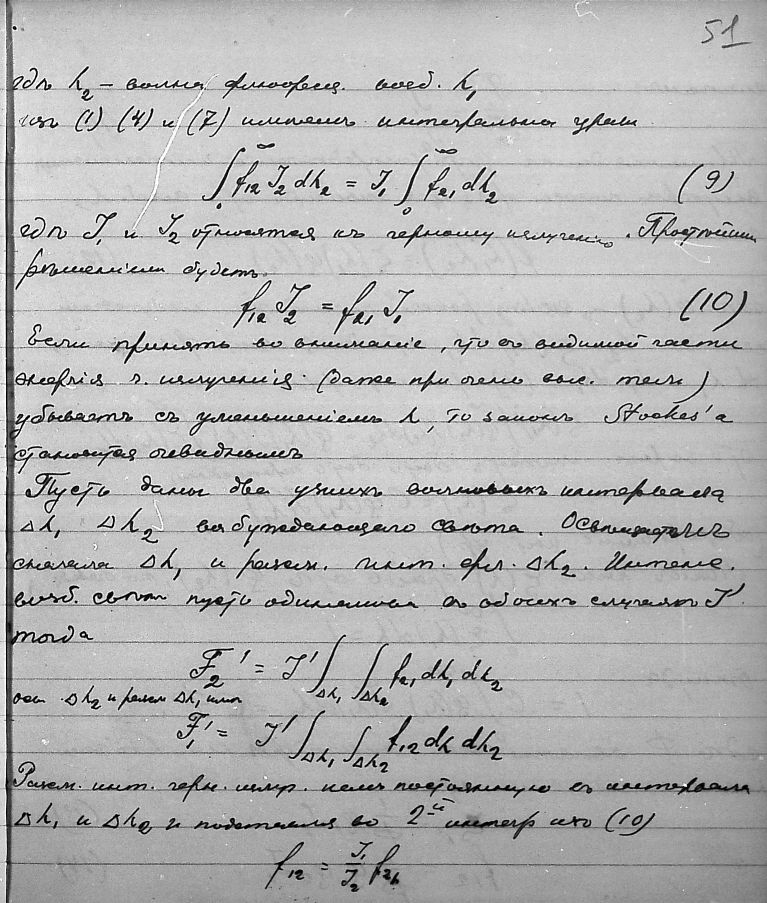 51
гдѣ λ₂ – волна флюоресц. возб. λ₁
изъ (1) (4) и (7) имѣемъ интегральн. урав.
∫₀^∞ f₁₂ J₂ dλ₂ = J₁ ∫₀^∞ f₂₁ dλ₂ (9)
гдѣ J₁ и J₂ относятся къ черному излученію. Простѣйшимъ
рѣшеніемъ будетъ.
f₁₂ J₂ = f₂₁ J₁ (10)
Если принять во вниманіе, что въ видимой части
энергія ч. излученія (даже при очень выс. темп.)
убываетъ съ уменьшеніемъ λ, то законъ Stockes'а
становится очевиднымъ
Пусть даны два узкихъ волновыхъ интервала
Δλ₁ Δλ₂ возбуждающаго свѣта. Освѣщаемъ
сначала Δλ₁ и разсм. инт. фл. Δλ₂. Интенс.
возб. свѣта пусть одинакова въ обоихъ случаяхъ J'
тогда
F₂' = J' ∫Δλ₁ ∫Δλ₂ f₂₁ dλ₁ dλ₂
осв. Δλ₂ и разсм Δλ₁ имѣ
F₁' = J' ∫Δλ₁ ∫Δλ₂ f₁₂ dλ dλ₂
Разсм. инт. черн. излуч. постоянную въ интервала
Δλ₁ и Δλ₂ и подставляя во 2ой интегр изъ (10)
f₁₂ = J₁/J₂ f₂₁